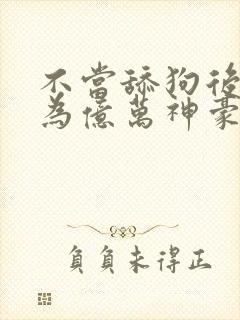 不當舔狗後
為億萬神豪
負負未得正